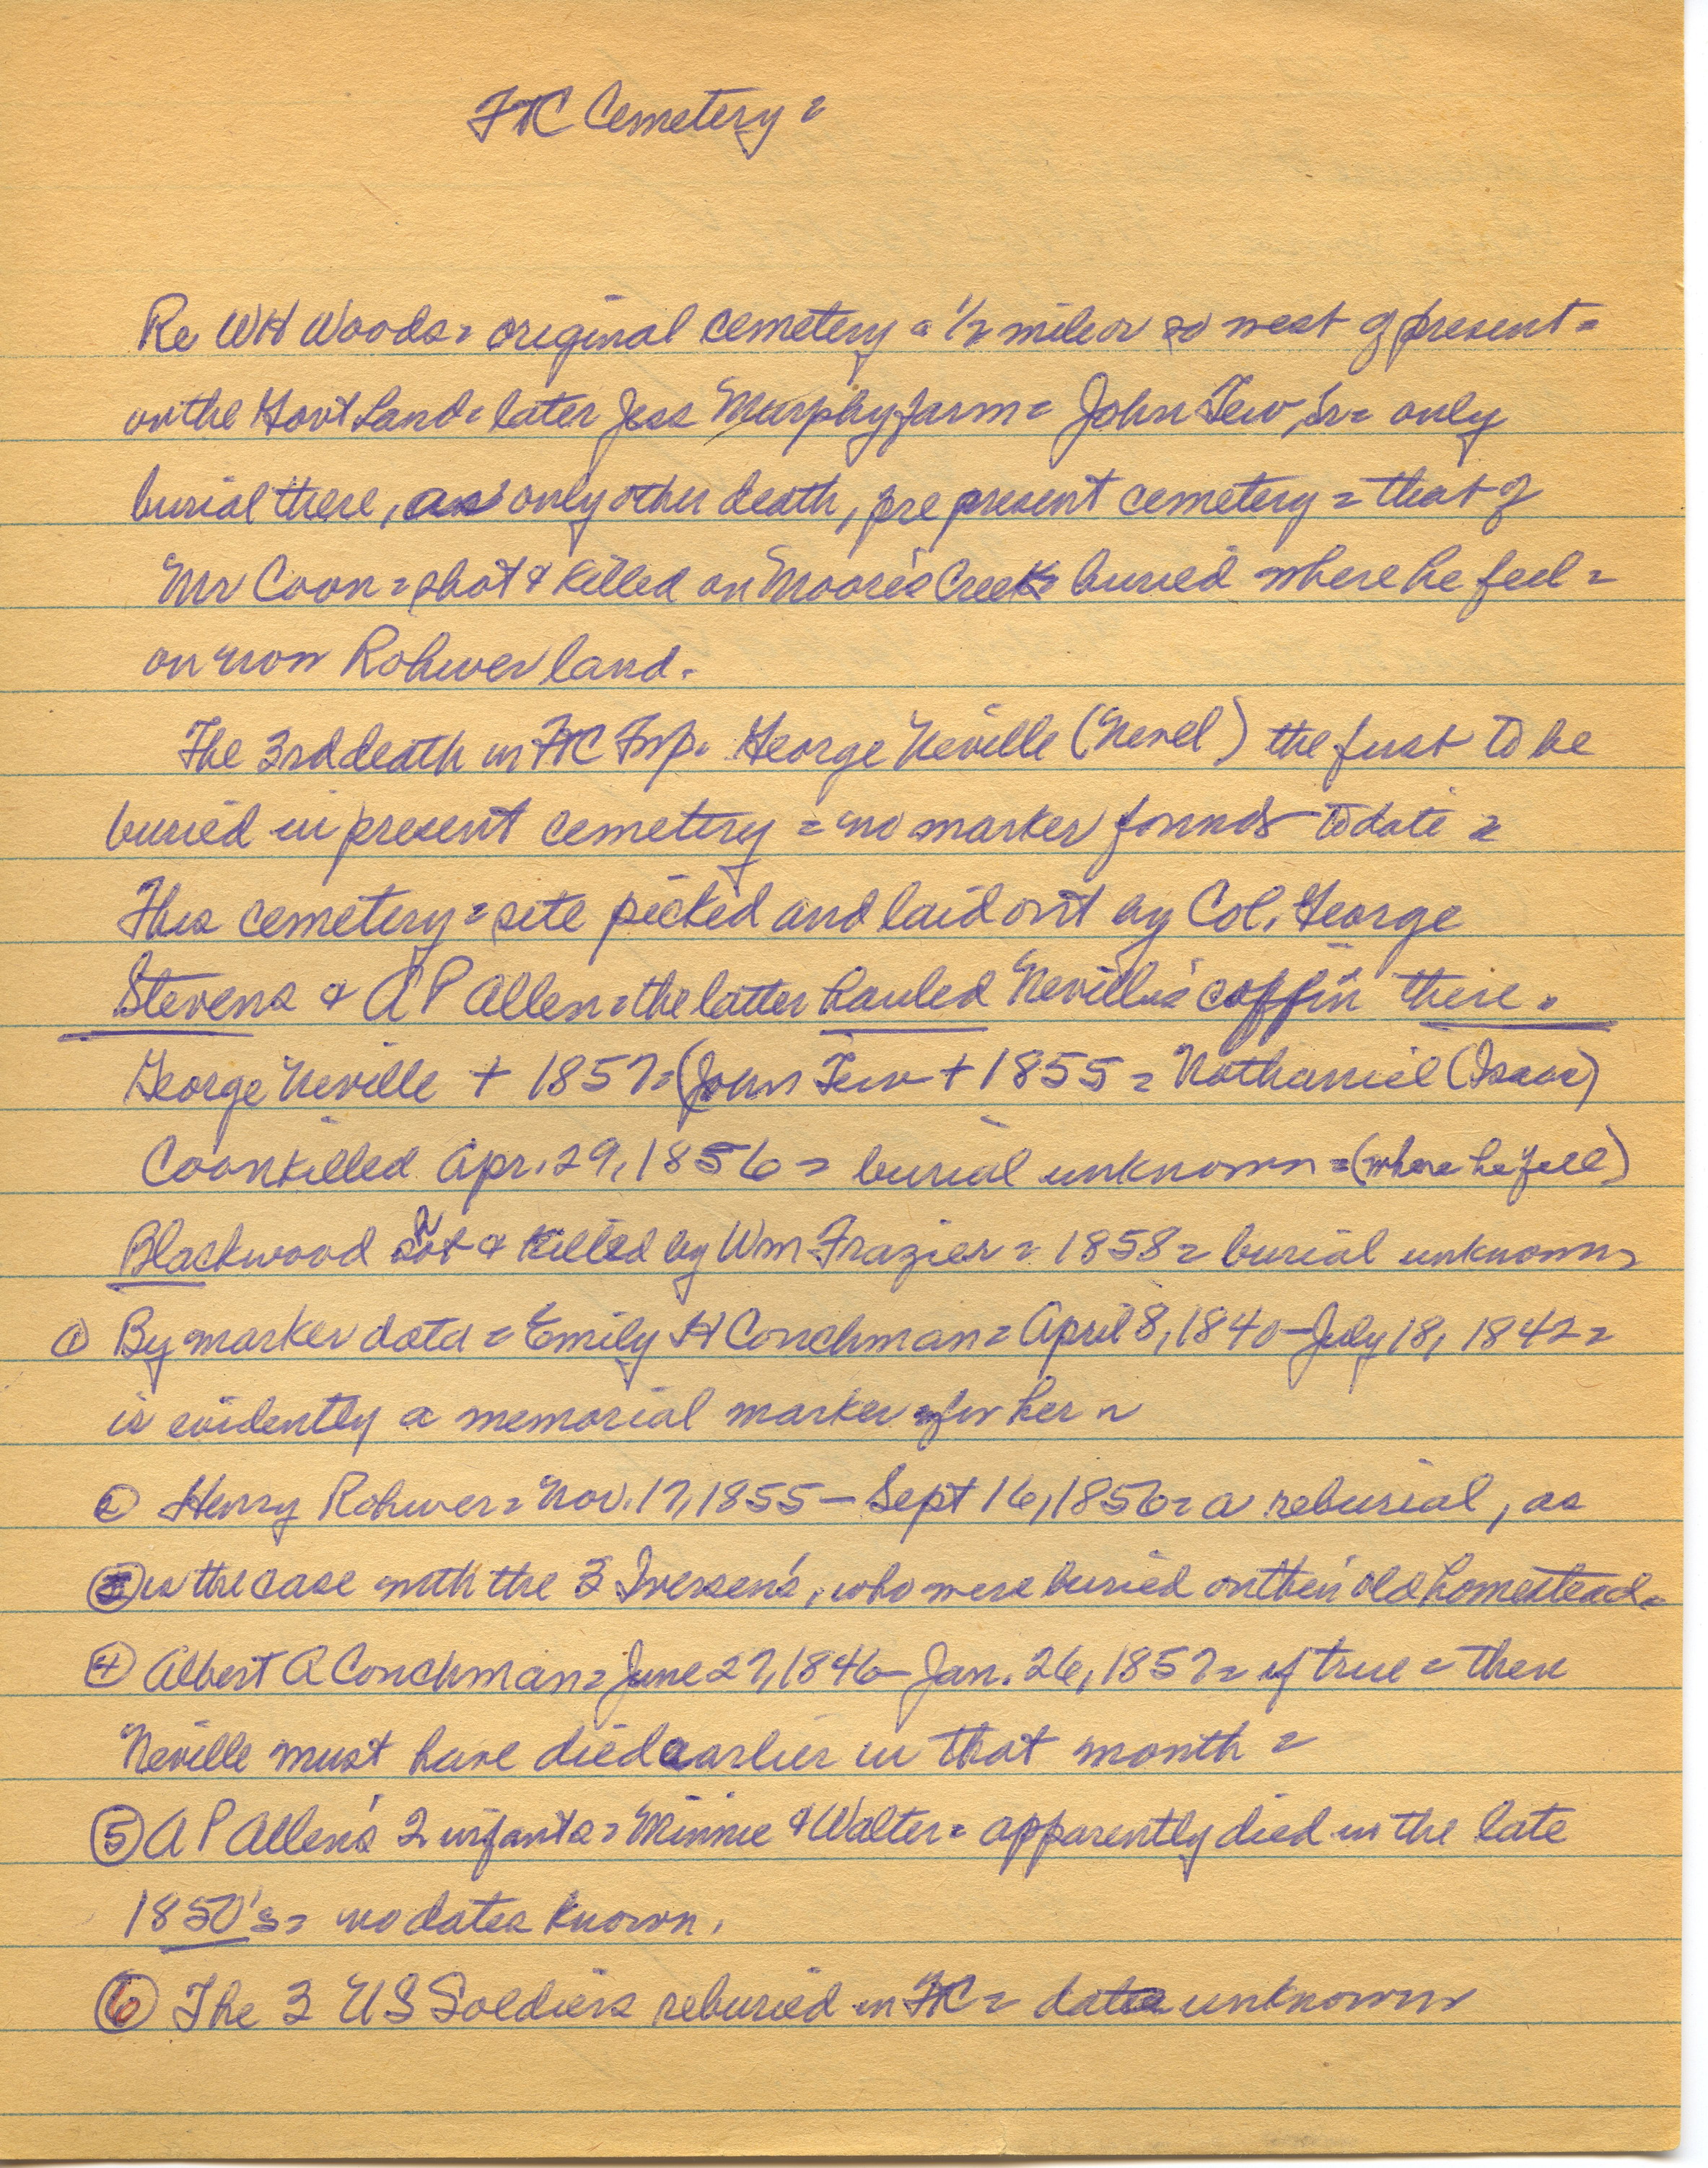 FtC Cemetery =
Re WH Woods = original cemetery = 1/2 mile or so west of present =
on the Govt Land = later Jess Murphy farm = John Tew, Sr = only
burial there, as only other death, pre present cemetery = that of
Mr Coon = shot & killed on Moore's Creek = buried where he feel =
on now Rohwer land.
The 3rd death in FtC Twp. George Neville (Nevel) the first to be
buried in present cemetery = no marker found to date =
This cemetery = site picked and laid out by Col. George
Stevens & A P Allen = the latter hauled Neville's coffin there.
George Neville + 1857 = (John Tew + 1855 = Nathaniel (Isaac)
Coon killed Apr. 29, 1856 = burial unknown = (where he fell)
Blackwood shot & killed by Wm Frazier = 1858 = burial unknown =
① By marker data = Emily H Couchman = April 8, 1840 - July 18, 1842 =
is evidently a memorial marker for her
② Henry Rohwer = Nov. 17, 1855 - Sept 16, 1856 = a reburial, as
③ is the case with the 3 Iversen's, who were buried on their old homestead =
④ Albert A Couchman = June 27, 1846 - Jan. 26, 1857 = if true = then
Neville must have died earlier in that month =
⑤ A P Allen's 2 infants = Minnie & Walter = apparently died in the late
1850's = no dates known.
⑥ The 3 US Soldiers reburied in FtC = dates unknown